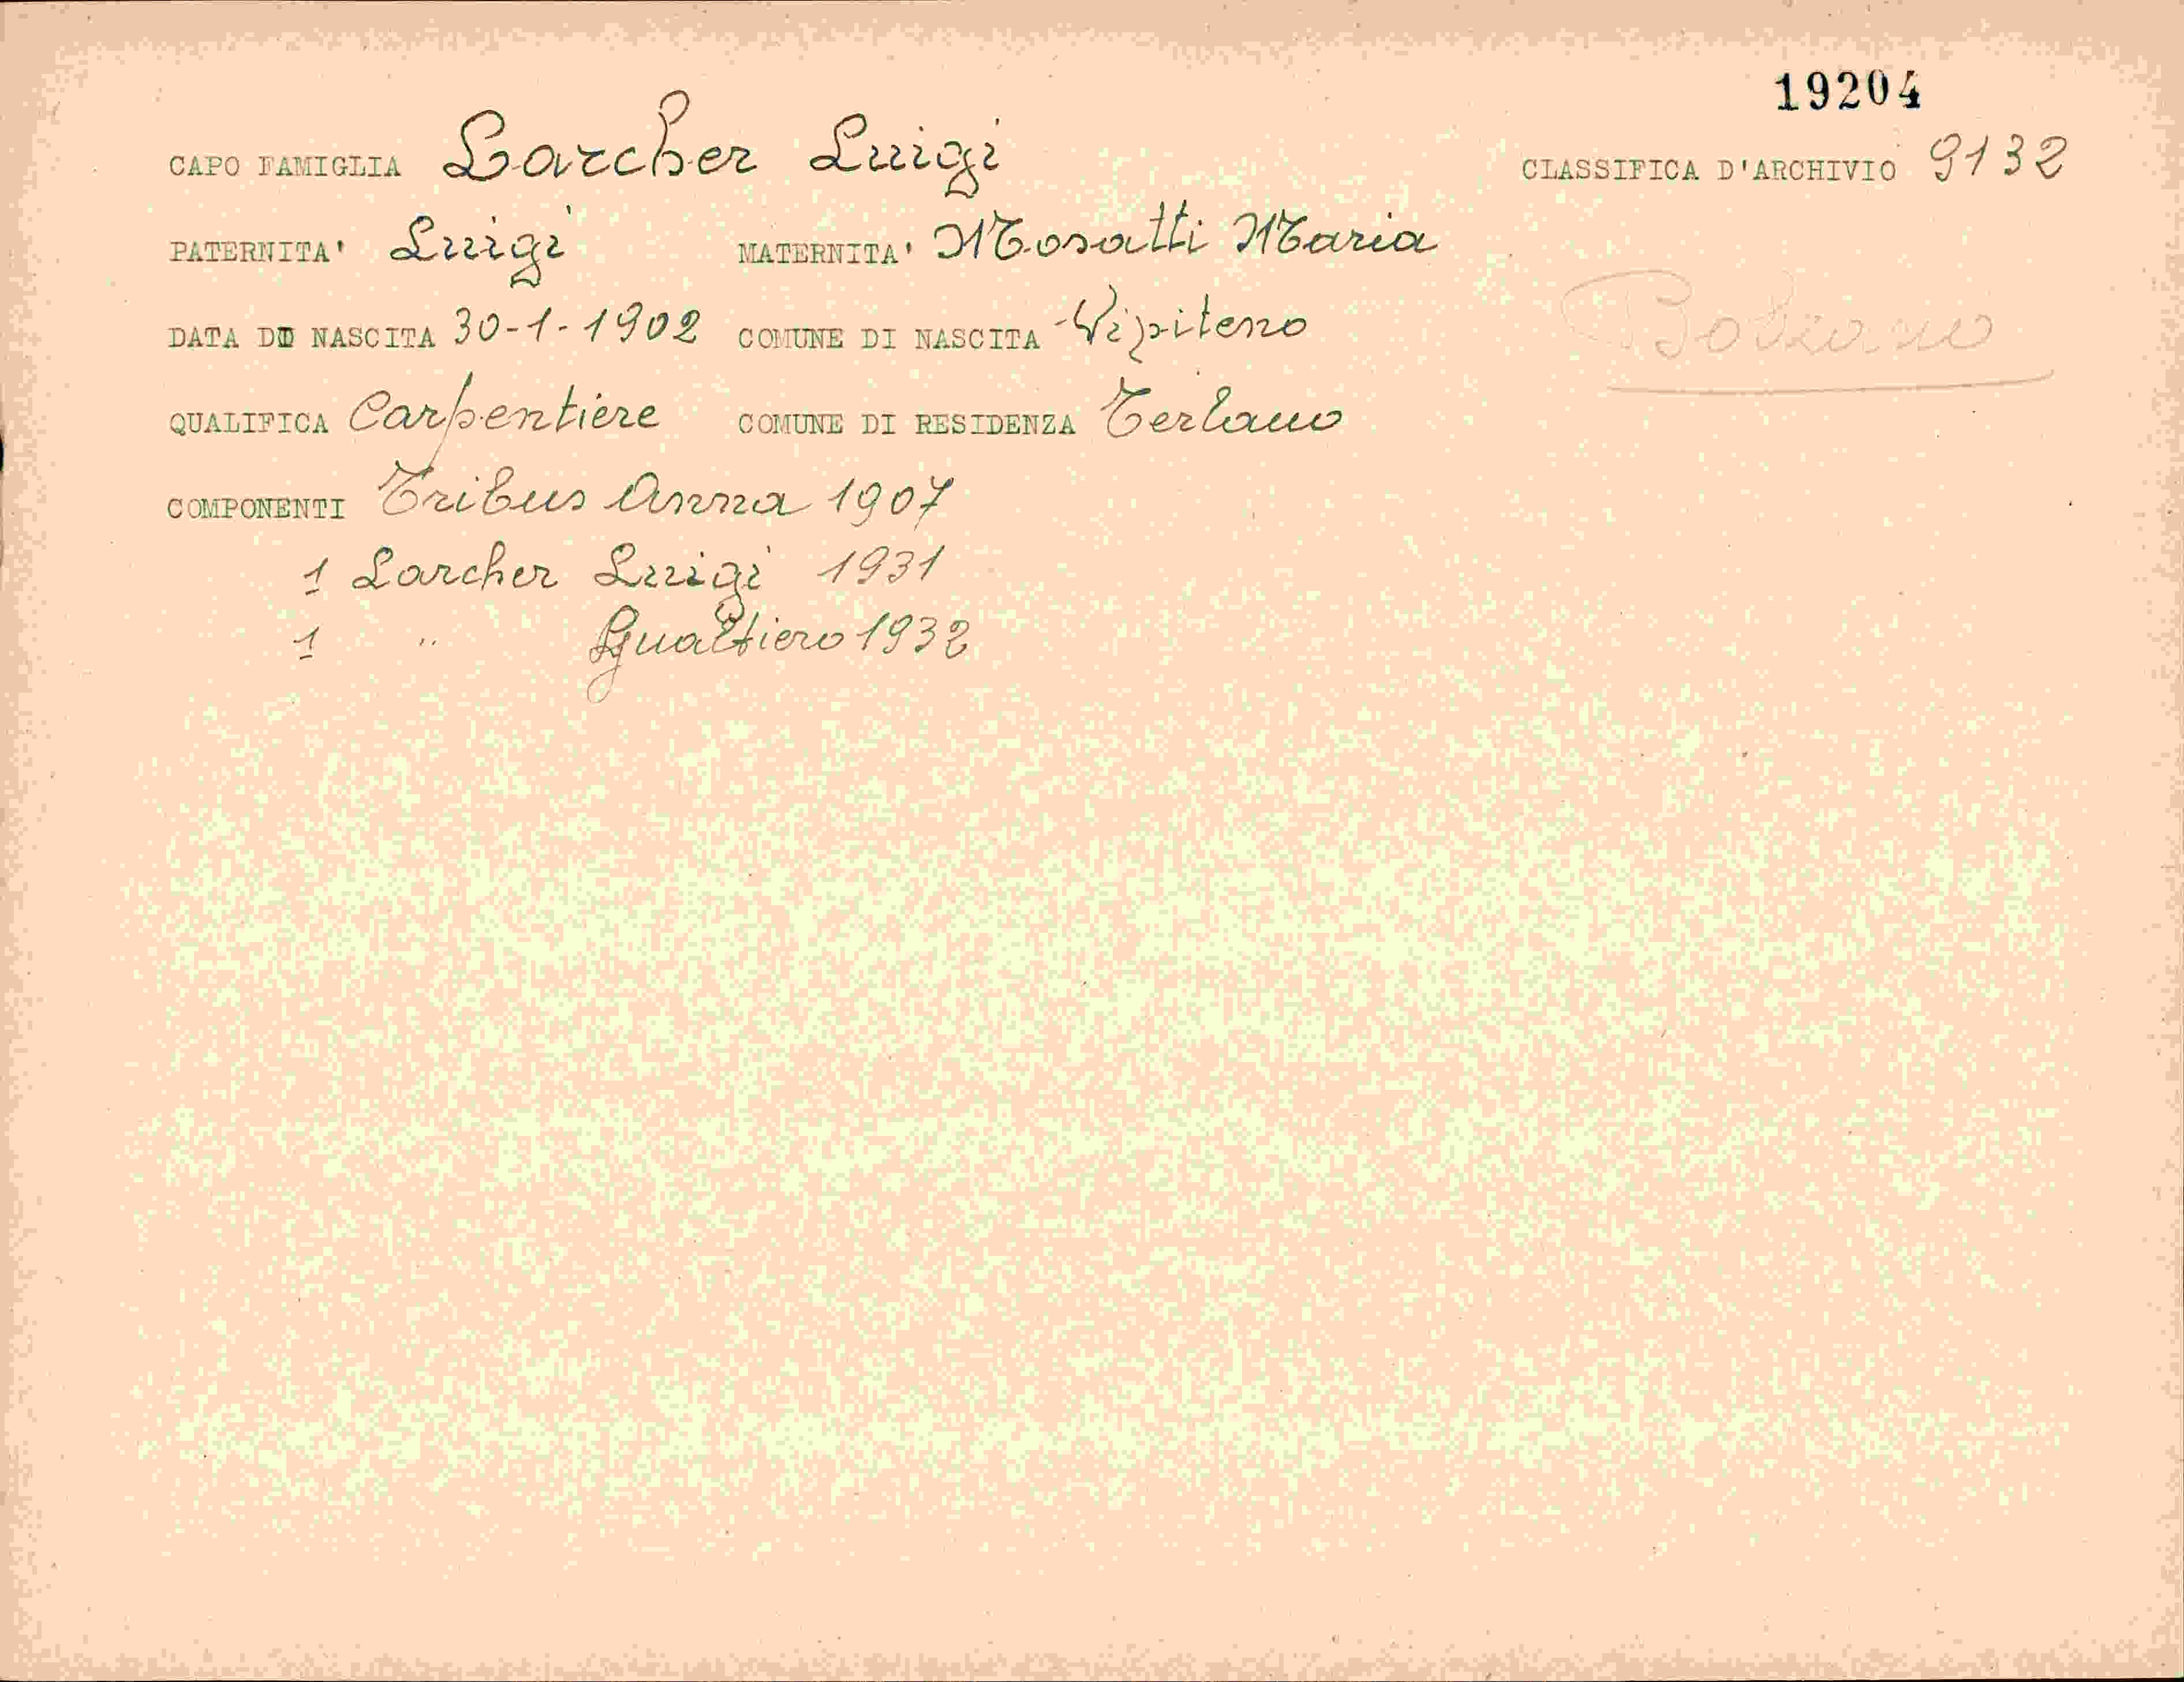 19204
CAPO FAMIGLIA Larcher Luigi CLASSIFICA D'ARCHIVIO 9132
PATERNITA' Luigi MATERNITA' Mosatti Maria
DATA DI NASCITA 30-1-1902 COMUNE DI NASCITA Vipiteno
Bolzano
QUALIFICA Carpentiere COMUNE DI RESIDENZA Terlano
COMPONENTI Tribus Anna 1907
1 Larcher Luigi 1931
1 " Gualtiero 1932